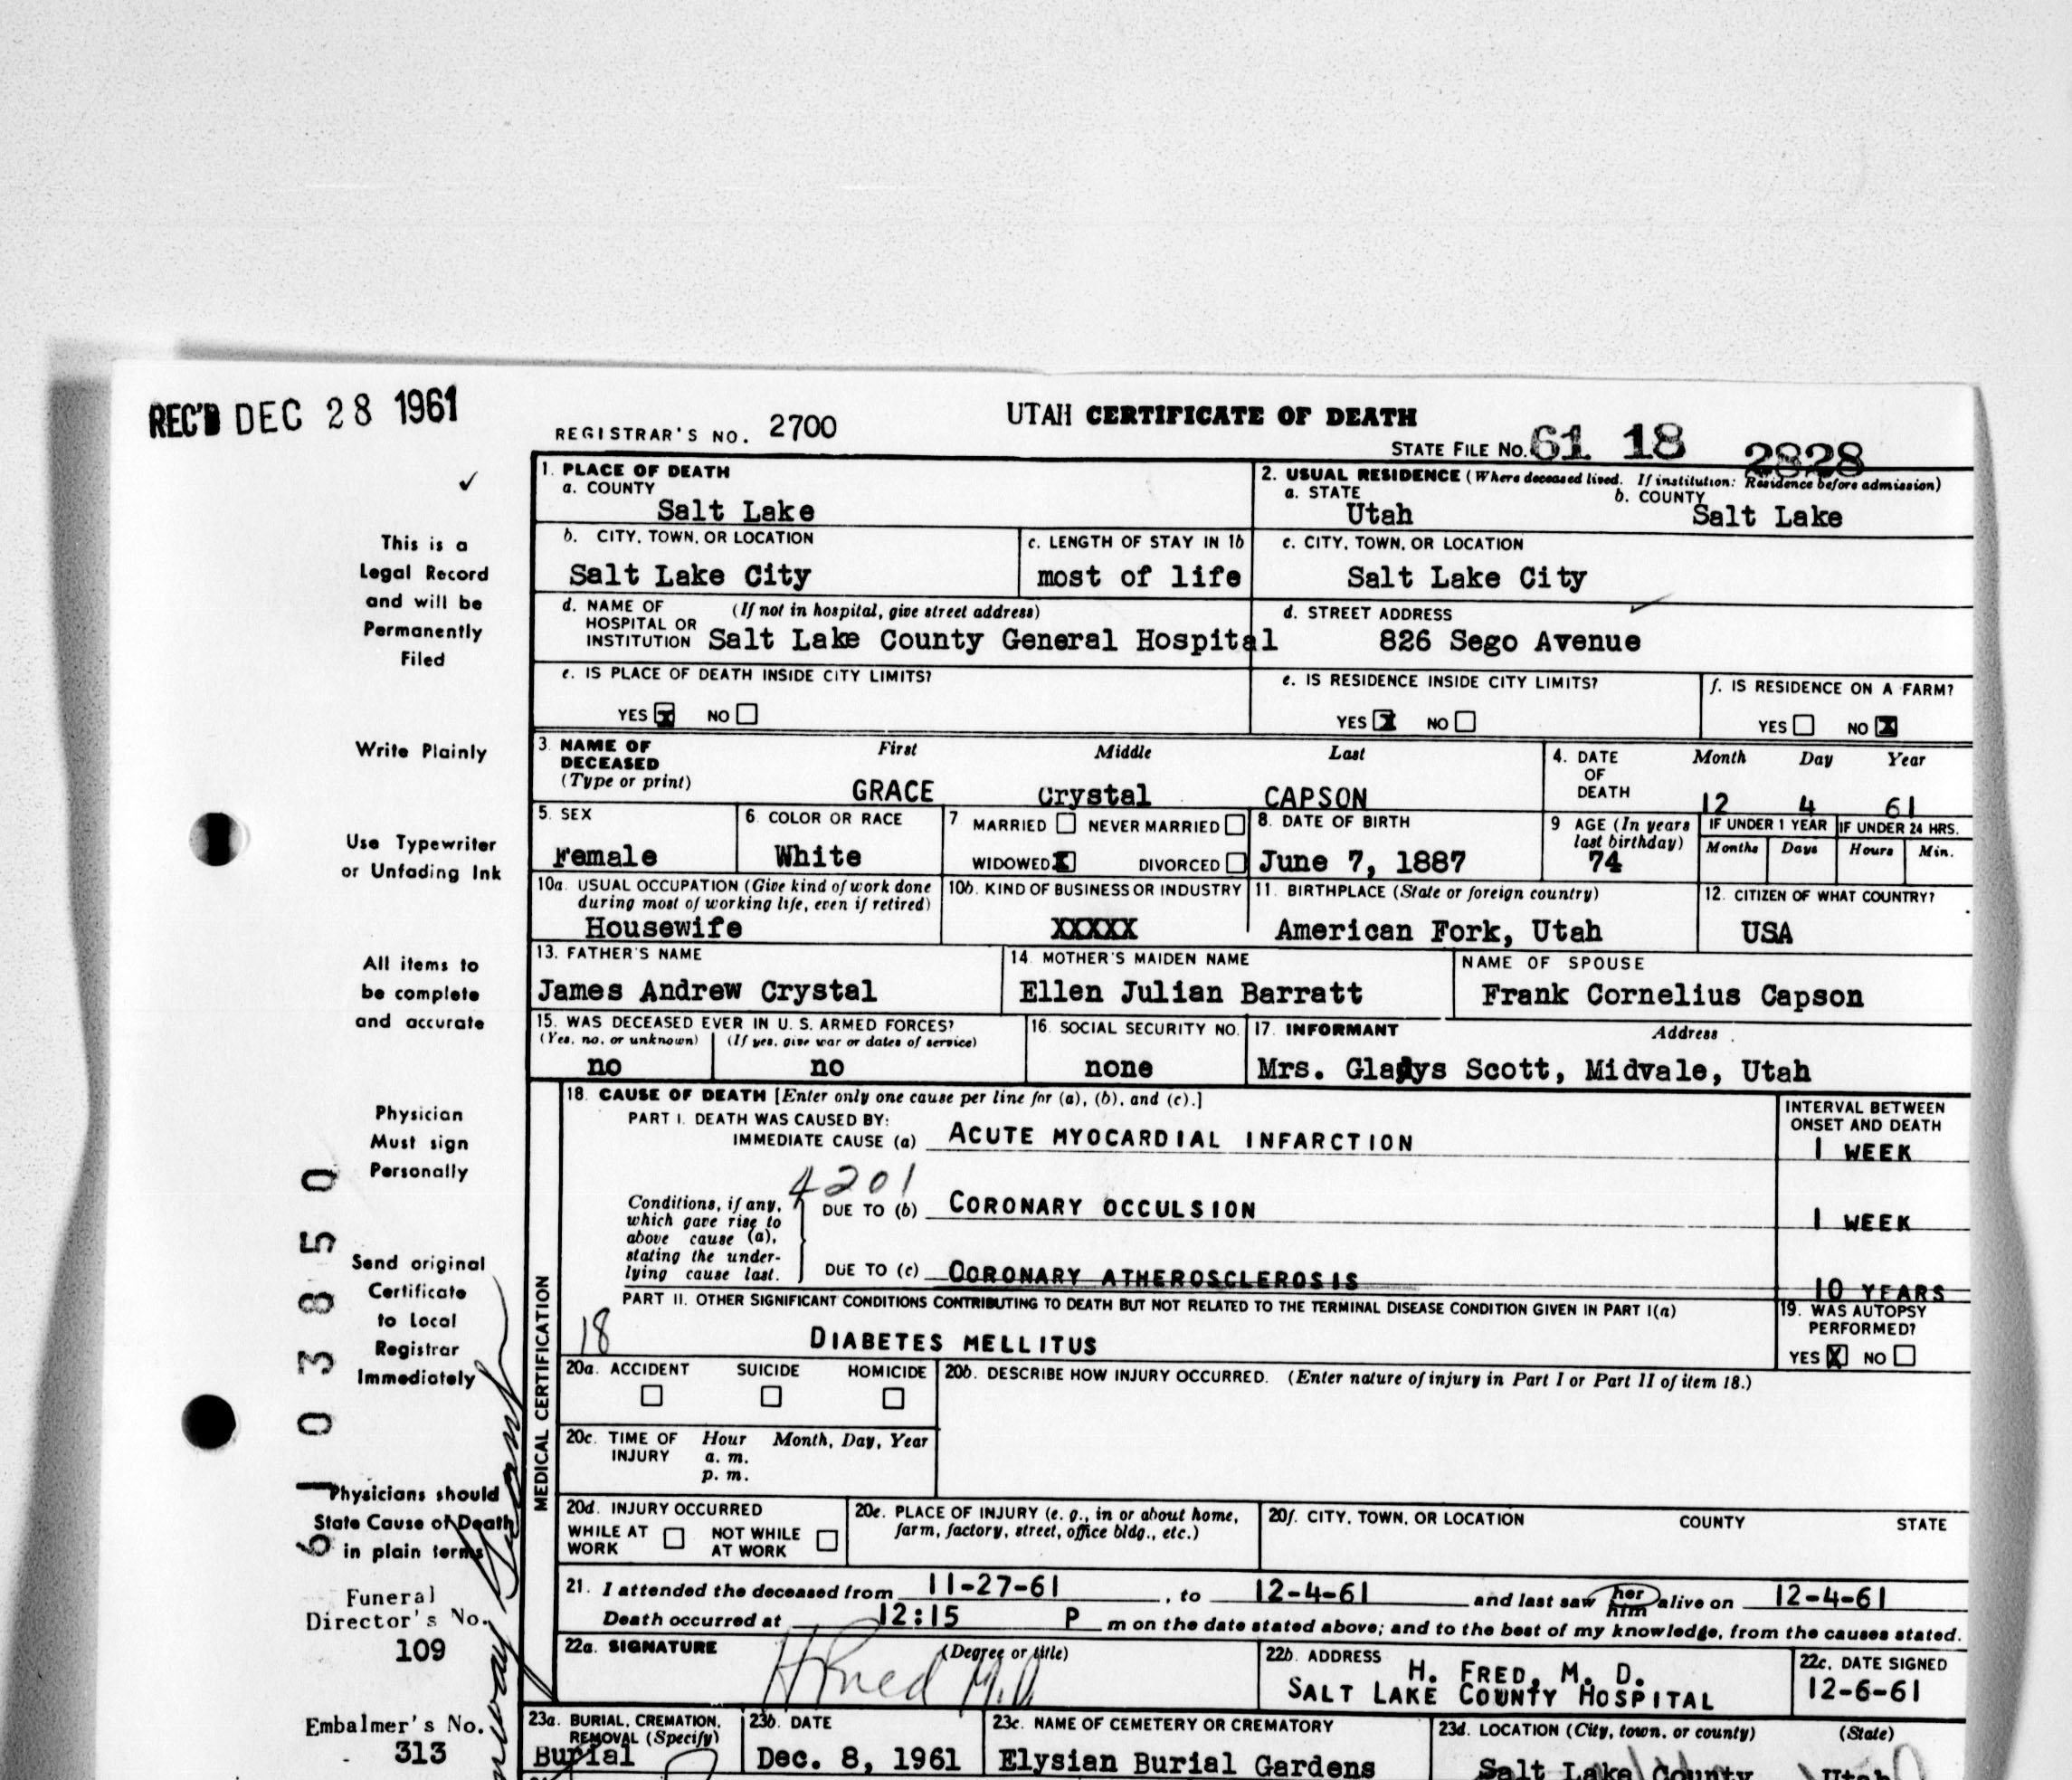 REC'D DEC 28 1961
REGISTRAR'S NO. 2700
UTAH CERTIFICATE OF DEATH
STATE FILE NO. 61 18 2828
✓
This is a
Legal Record
and will be
Permanently
Filed
Write Plainly
Use Typewriter
or Unfading Ink
All items to
be complete
and accurate
Physician
Must sign
Personally
Send original
Certificate
to Local
Registrar
Immediately
Physicians should
State Cause of Death
in plain terms
Funeral
Director's No.
109
Embalmer's No.
313
6103850
1. PLACE OF DEATH
a. COUNTY
Salt Lake
2. USUAL RESIDENCE (Where deceased lived. If institution: Residence before admission)
a. STATE
Utah
b. COUNTY
Salt Lake
b. CITY, TOWN, OR LOCATION
Salt Lake City
c. LENGTH OF STAY IN 1b
most of life
c. CITY, TOWN, OR LOCATION
Salt Lake City
d. NAME OF HOSPITAL OR INSTITUTION (If not in hospital, give street address)
Salt Lake County General Hospital
d. STREET ADDRESS
826 Sego Avenue
e. IS PLACE OF DEATH INSIDE CITY LIMITS?
YES X NO
e. IS RESIDENCE INSIDE CITY LIMITS?
YES X NO
f. IS RESIDENCE ON A FARM?
YES NO X
3. NAME OF DECEASED (Type or print)
First Middle Last
GRACE Crystal CAPSON
4. DATE OF DEATH
Month Day Year
12 4 61
5. SEX
Female
6. COLOR OR RACE
White
7. MARRIED NEVER MARRIED
WIDOWED X DIVORCED
8. DATE OF BIRTH
June 7, 1887
9. AGE (In years last birthday)
74
IF UNDER 1 YEAR
Months Days
IF UNDER 24 HRS.
Hours Min.
10a. USUAL OCCUPATION (Give kind of work done during most of working life, even if retired)
Housewife
10b. KIND OF BUSINESS OR INDUSTRY
XXXXX
11. BIRTHPLACE (State or foreign country)
American Fork, Utah
12. CITIZEN OF WHAT COUNTRY?
USA
13. FATHER'S NAME
James Andrew Crystal
14. MOTHER'S MAIDEN NAME
Ellen Julian Barratt
NAME OF SPOUSE
Frank Cornelius Capson
15. WAS DECEASED EVER IN U. S. ARMED FORCES?
(Yes, no, or unknown) (If yes, give war or dates of service)
no no
16. SOCIAL SECURITY NO.
none
17. INFORMANT Address
Mrs. Gladys Scott, Midvale, Utah
MEDICAL CERTIFICATION
18. CAUSE OF DEATH [Enter only one cause per line for (a), (b), and (c).]
PART I. DEATH WAS CAUSED BY:
IMMEDIATE CAUSE (a) ACUTE MYOCARDIAL INFARCTION
INTERVAL BETWEEN ONSET AND DEATH
1 WEEK
4201
Conditions, if any, which gave rise to above cause (a), stating the underlying cause last.
DUE TO (b) CORONARY OCCULSION
1 WEEK
DUE TO (c) CORONARY ATHEROSCLEROSIS
10 YEARS
PART II. OTHER SIGNIFICANT CONDITIONS CONTRIBUTING TO DEATH BUT NOT RELATED TO THE TERMINAL DISEASE CONDITION GIVEN IN PART I(a)
18
DIABETES MELLITUS
19. WAS AUTOPSY PERFORMED?
YES X NO
20a. ACCIDENT SUICIDE HOMICIDE
20b. DESCRIBE HOW INJURY OCCURRED. (Enter nature of injury in Part I or Part II of item 18.)
20c. TIME OF INJURY Hour Month, Day, Year
a. m.
p. m.
20d. INJURY OCCURRED
WHILE AT WORK NOT WHILE AT WORK
20e. PLACE OF INJURY (e. g., in or about home, farm, factory, street, office bldg., etc.)
20f. CITY, TOWN, OR LOCATION COUNTY STATE
21. I attended the deceased from 11-27-61, to 12-4-61 and last saw her him alive on 12-4-61
Death occurred at 12:15 P m on the date stated above; and to the best of my knowledge, from the causes stated.
22a. SIGNATURE (Degree or title)
H Fred M.D.
22b. ADDRESS
H. FRED, M. D.
SALT LAKE COUNTY HOSPITAL
22c. DATE SIGNED
12-6-61
23a. BURIAL, CREMATION, REMOVAL (Specify)
Burial
23b. DATE
Dec. 8, 1961
23c. NAME OF CEMETERY OR CREMATORY
Elysian Burial Gardens
23d. LOCATION (City, town, or county) (State)
Salt Lake County Utah